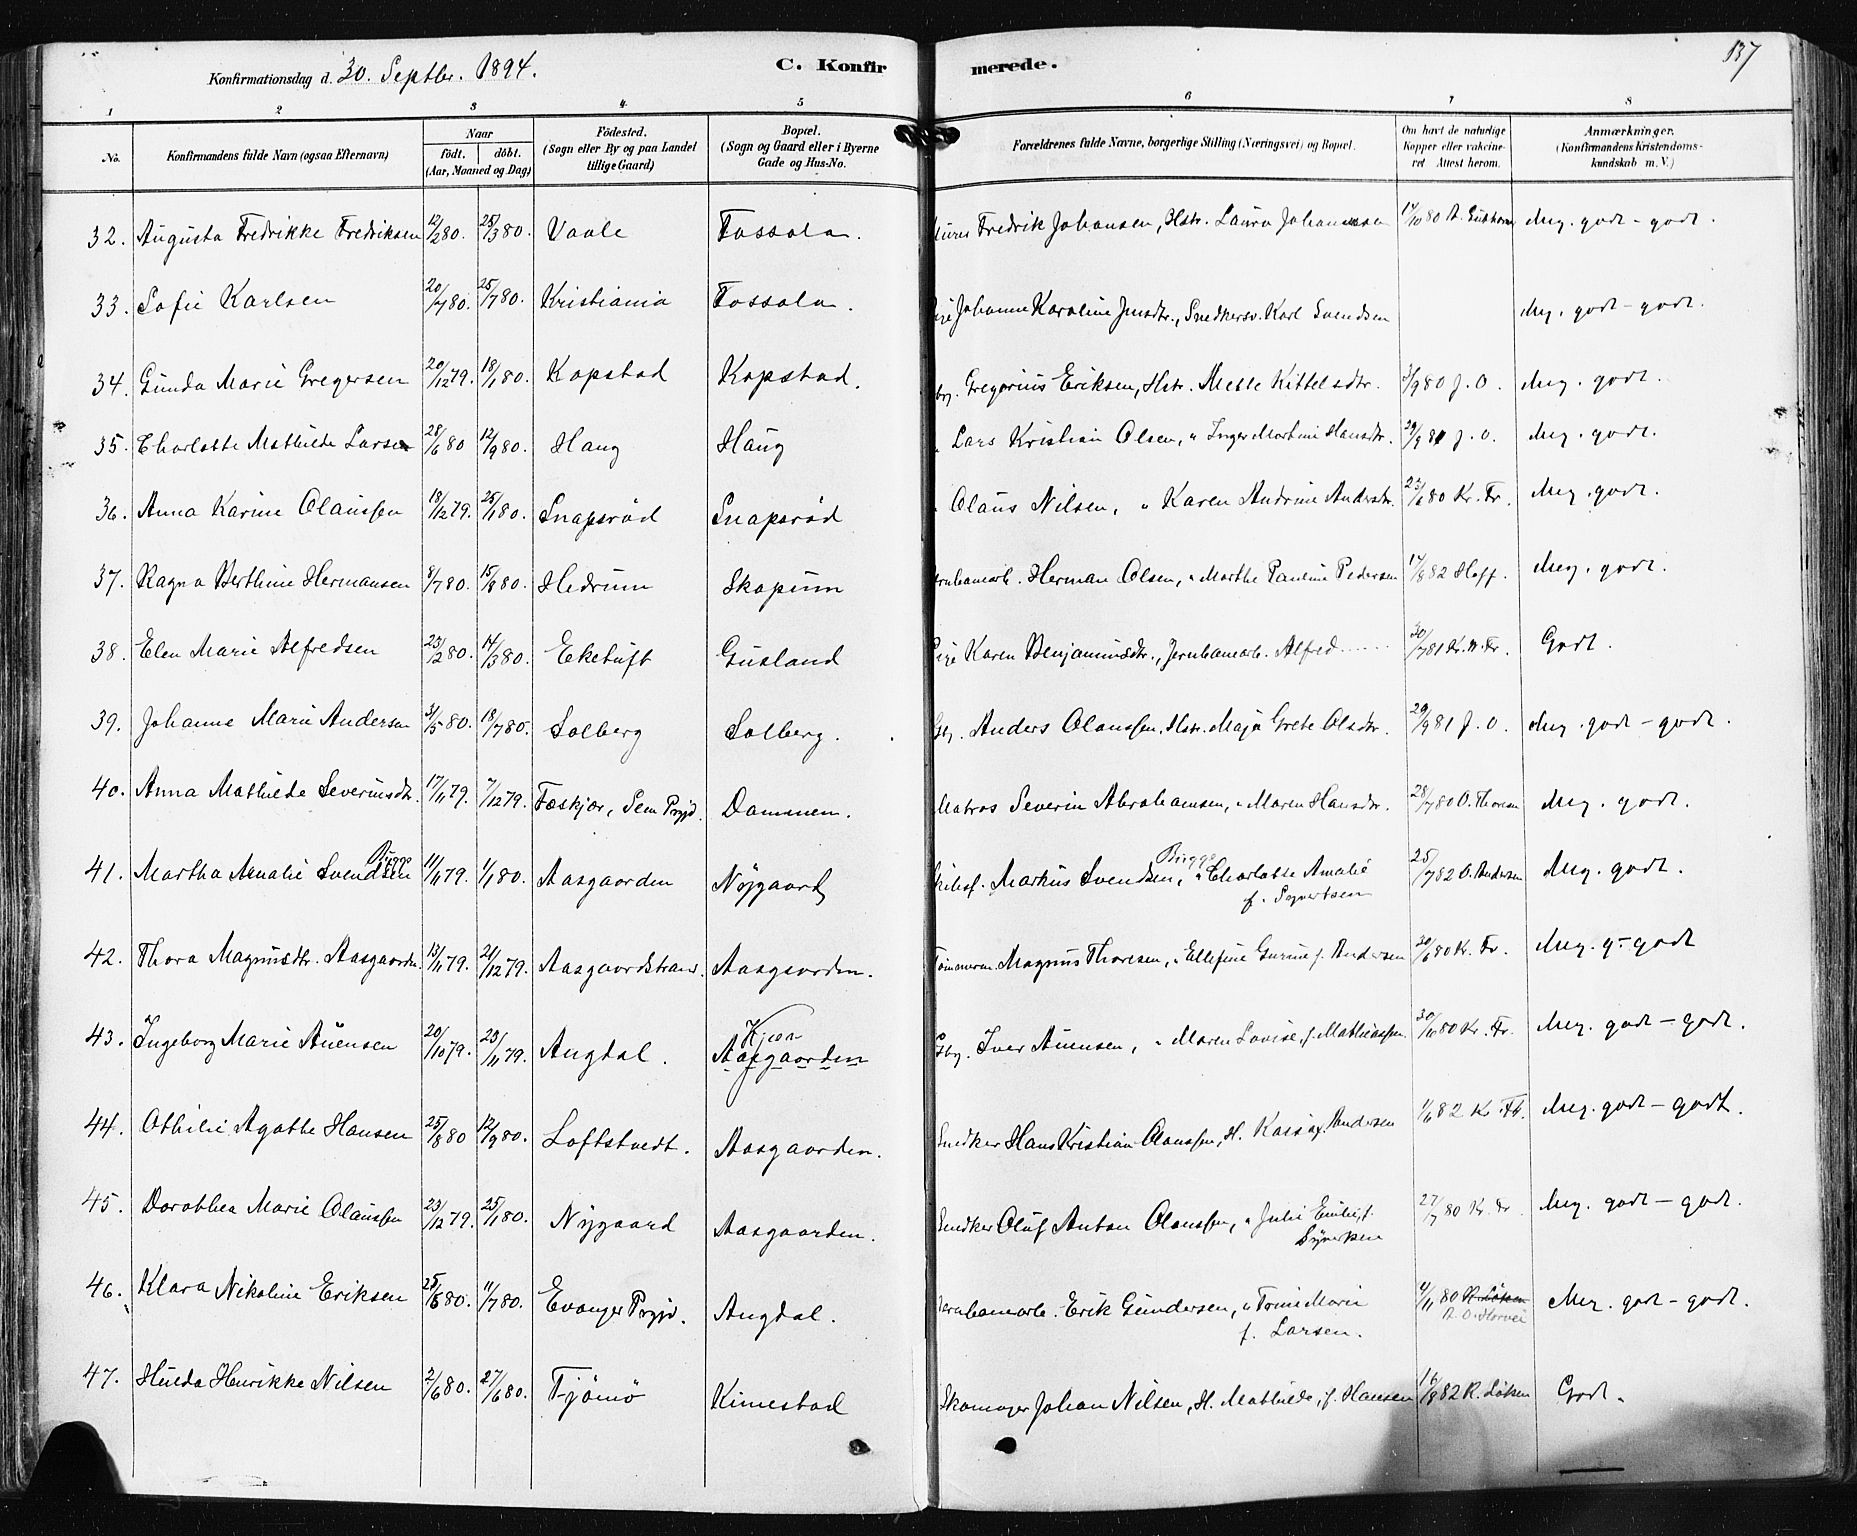 137
Konfirmationsdag d. 30. Septbr. 1894. C. Konfirmerede.
1 2 3 4 5 6 7 8
No. Konfirmandens fulde Navn (ogsaa Efternavn) Naar födt. döbt. (Aar, Maaned og Dag) Födested. (Sogn eller By og paa Landet tillige Gaard) Bopæl. (Sogn og Gaard eller i Byerne Gade og Hus-No. Forældrenes fulde Navne, borgerlige Stilling (Næringsvei) og Bopæl. Om havt de naturlige Kopper eller vakcineret Attest herom. Anmærkninger. (Konfirmandens Kristendomskundskab m. V.)
32. Augusta Fredrikke Fredriksen 12/2 80. 25/3 80. Vaale Fossaln. Fredrik Johansen, Hstr. Laura Johannessen 17/10 80 Meg. godt - godt.
33. Sofie Karlsen 20/7 80. 25/7 80. Kristiania Fossaln. Johanne Karoline Jensdtr., Snedkersv. Karl Svendsen Meg. godt - godt.
34. Gunda Marie Gregersen 20/12 79. 18/1 80. Kopstad Kopstad. Gregorius Eriksen, Hstr. Mette Kittelsdtr. 3/9 80 J. O. Meg. godt.
35. Charlotte Mathilde Larsen 28/6 80 12/9 80. Haug Haug Lars Kristian Olsen, " Inger Martine Hansdtr. 29/9 81 J. O. Meg. godt.
36. Anna Karine Olaussen 18/12 79. 25/1 80. Snapsröd Snapsröd Olaus Nilsen, " Karen Andrine Andersdtr. 23/6 80 Kr. Fr. Meg. godt.
37. Ragna Berthine Hermansen 8/7 80. 15/8 80. Hedrum Skopum Jernbanearb. Herman Olsen, " Marthe Pauline Pedersen 17/8 82 Hoff. Meg. godt.
38. Elen Marie Alfredsen 23/2 80. 14/3 80. Eketuft Gusland Pige Karen Benjaminsdtr., Jernbanearb. Alfred ...... 30/7 81 Kr. Fr. Godt.
39. Johanne Marie Andersen 31/5 80 18/7 80. Solberg Solberg. Gbr. Anders Olaussen, Hstr. Maja Grete Olsdtr. 29/9 81 J. O. Meg. godt - godt.
40. Anna Mathilde Severinsdtr. 17/11 79. 7/12 79. Fæskjær, Sem Prgjd. Dammen. Matros Severin Abrahamsen, " Maren Hansdtr. 28/7 80 O. Thoresen Meg. godt.
41. Martha Amalie Svendsen Brygge 11/11 79. 1/1 80. Aasgaarden Nøjgaard Skibsf. Markus Svendsen, Brygge " Charlotte Amalie 25/7 82 O. Andersen Meg. godt.
f. Syvertsen
42. Thora Magnusdtr. Aasgaarden 13/11 79. 21/12 79. Aasgaardstrand Aasgaarden. Tömmerm. Magnus Thoresen, " Ellefine Gurine f. Andersen 20/6 80 Kr. Fr. Meg. g - godt
43. Ingeborg Marie Auensen 20/10 79. 23/11 79. Augdal. Kjær Aasgaarden Gbr. Iver Auensen, " Maren Lovise, f. Mathiassen 30/11 80 Kr. Fr. Meg. godt - godt.
44. Othilie Agathe Hansen 25/8 80 12/9 80. Loftstvedt. Aasgaarden. Snedker Hans Kristian Olaussen, H. Andersen 1/6 82 Kr. Fr. Meg. godt - godt.
45. Dorothea Marie Olaussen 23/12 79. 25/1 80. Nygaard Aasgaarden. Snedker Oluf Anton Olaussen, " Julie Emilie, f. 27/7 80 Kr. Fr. Meg. godt - godt.
Syvertsen
46. Klara Nikoline Eriksen 25/5 80. 11/7 80. Evanger Prgjd. Augdal. Jernbanearb. Erik Gundersen, " Trine Marie 4/11 80 R. Løken Meg. godt - godt.
f. Larsen.
47. Hulda Henrikke Nilsen 2/6 80. 27/6 80. Tjömö Kimestad Skomager Johan Nilsen, H. Mathilde, f. Hansen 16/8 82 R. Løken Godt.